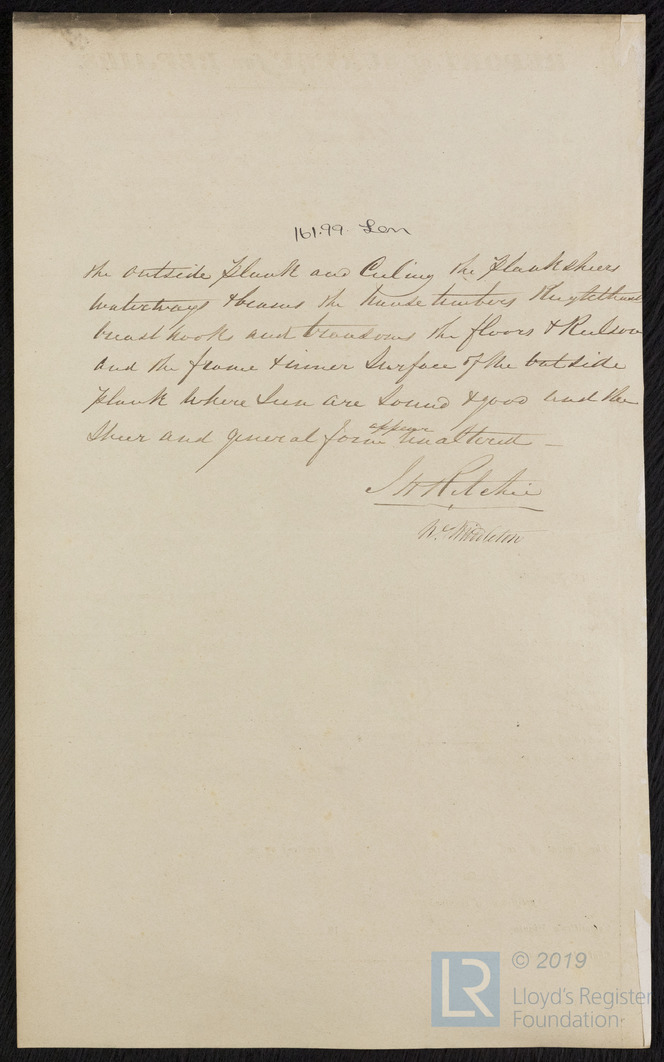 16199 Lon
the outside plank and Ceiling the plank sheers
Waterways & beams the hawse timbers Knightheads
breast hooks and transoms the floors & Keelson
and the frame & inner Surface of the outside
plank where Seen are Sound & good and the
Sheer and general form appear unaltered –
J H Ritchie
Wm Middleton
© 2019
Lloyd's Register
Foundation
LR